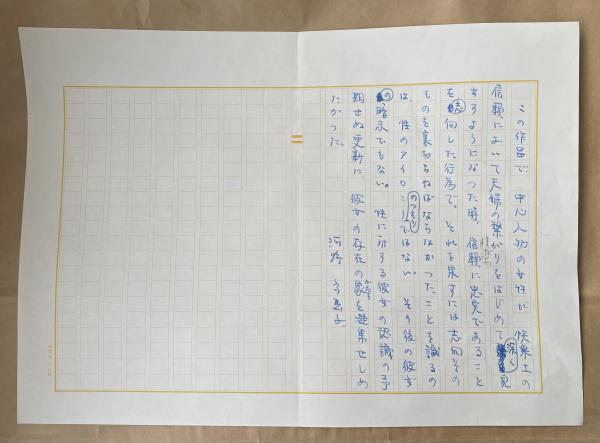 この作品で、中心人物の女性が、快楽上の
信頼において夫婦の繋がりをはじめて深く見
出すようになつた時、信頼に忠実であること
を志向した行為で、それを果すには志向その
ものを裏切らねばならなかつたことを識るの
は、性のアイロニーのつもりではない。その後の彼女
の暗示でもない。性に対する彼女の認識の予
期せぬ更新に、彼女の存在の象かたちを凝集せしめ
たかつた。
河野多惠子